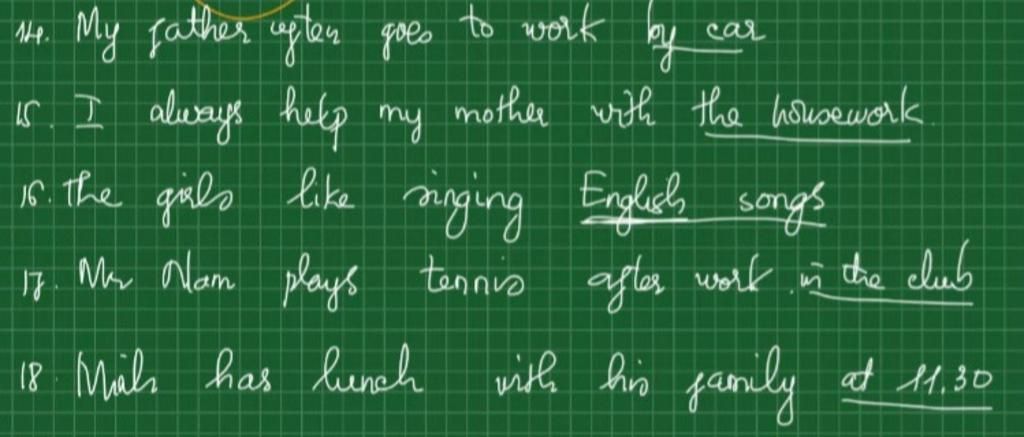 14. My father often goes to work by car
15. I always help my mother with the housework.
16. The girls like singing English songs
17. Mr Nam plays tennis after work in the club
18. Minh has lunch with his family at 11.30